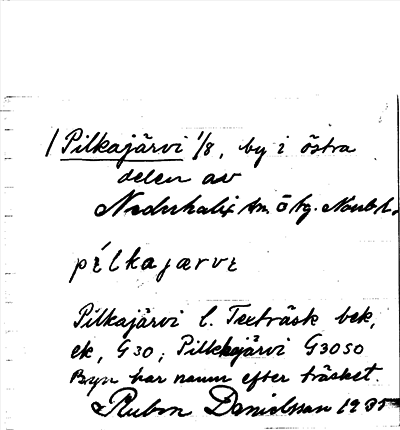 / Pilkajärvi 1/8, by i östra
delen av
Nederkalix sn. ö tg. Norrb. l.
pilkajærvi
Pilkajärvi l. Texträsk bek,
ek, G30; Pilkkajärvi G3050
Byn har namn efter träsket.
Rubon Danielsson 1935